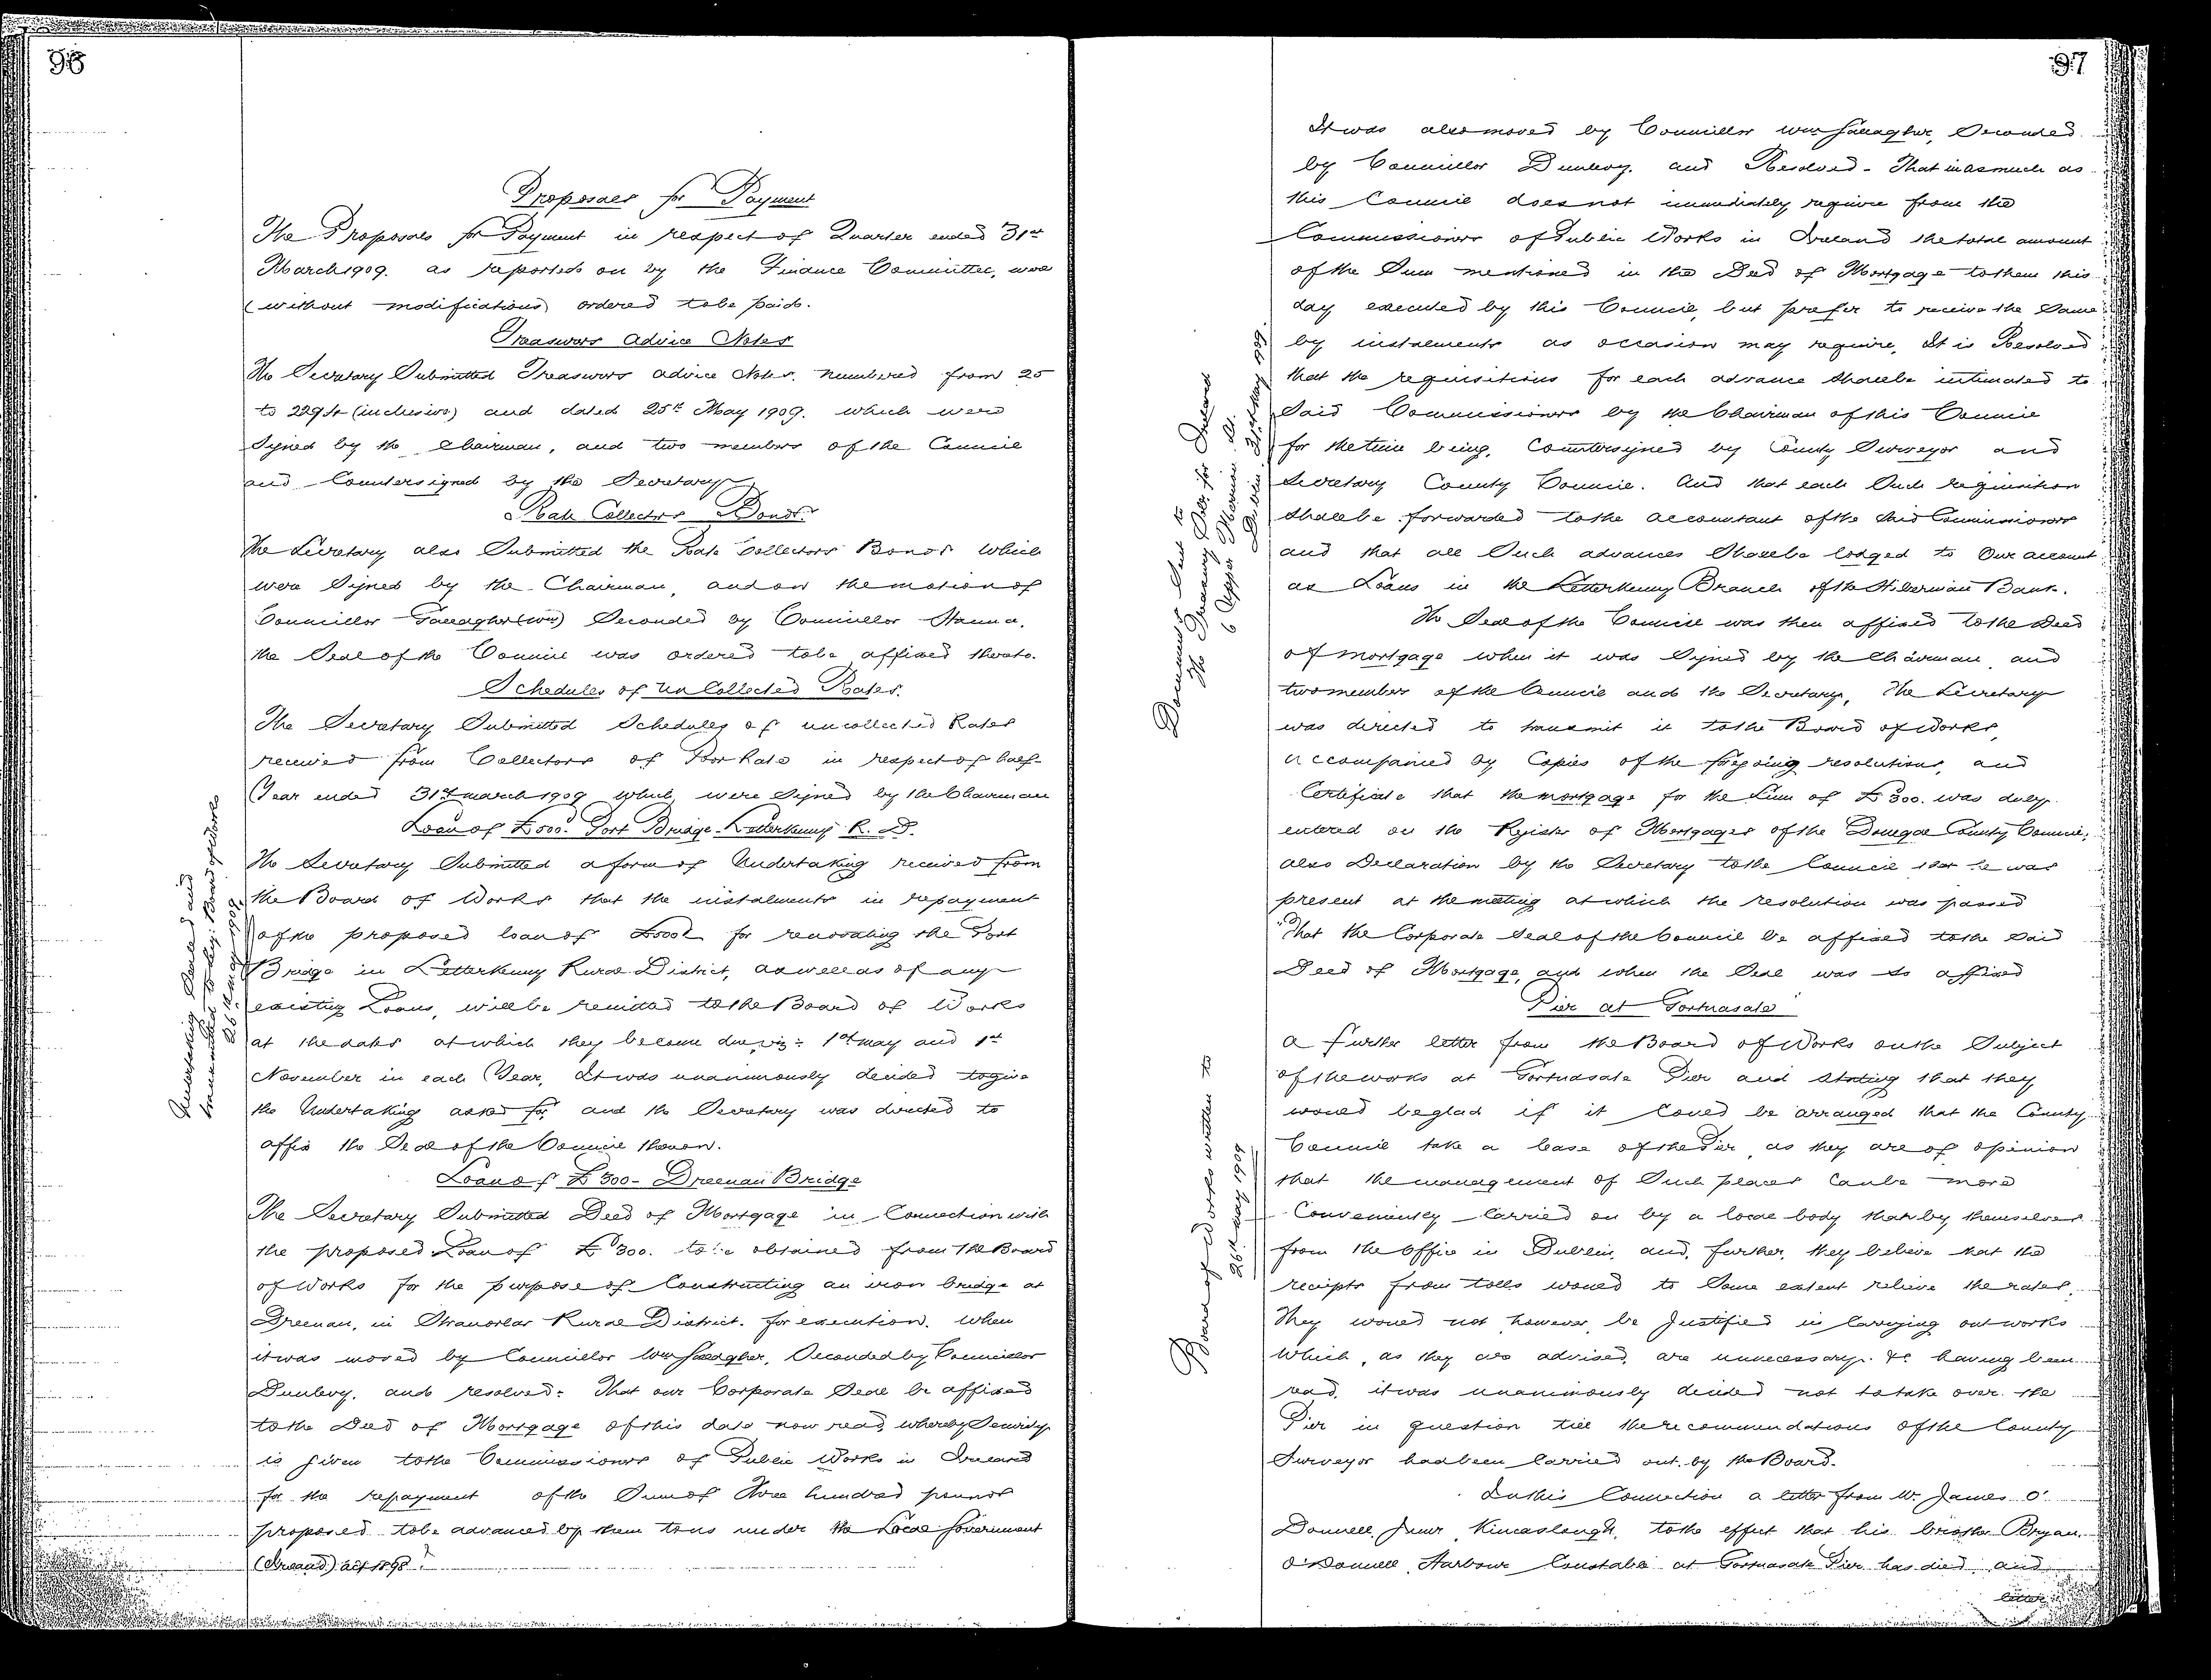 96
Proposals for Payment
The Proposals for Payment in respect of Quarter ended 31st
March 1909. as reported on by the Finance Committee, were
(without modifications) ordered to be paid.
Treasurers Advice Notes
The Secretary Submitted Treasurers advice Notes. numbered from 25
to 2294 (inclusive) and dated 25th May 1909. which were
Signed by the Chairman, and two members of the Council
and Countersigned by the Secretary
Rate Collectors Bonds.
The Secretary also Submitted the Rate Collectors Bonds which
were Signed by the Chairman, and on the motion of
Councillor Gallagher (Wm) Seconded by Councillor Hanna,
the Seal of the Council was ordered to be affixed thereto.
Schedules of Un Collected Rates.
The Secretary Submitted Schedules of uncollected Rates
received from Collectors of Poor Rate in respect of half-
Year ended 31st March 1909 which were Signed by the Chairman
Loan of £500. Port Bridge. Letterkenny R. D.
The Secretary Submitted a form of Undertaking received from
the Board of Works that the instalments in repayment
of the proposed loan of £500 for renovating the Port
Bridge in Letterkenny Rural District, as well as of any
existing Loans, will be remitted to the Board of Works
at the dates at which they become due, viz:- 1st May and 1st
November in each Year, It was unanimously decided to give
the Undertaking asked for, and the Secretary was directed to
affix the Seal of the Council thereon.
Undertaking Sealed and
transmitted to Board of Works
26th May 1909.
Loan of £300 - Dreenan Bridge
The Secretary Submitted Deed of Mortgage in Connection with
the proposed Loan of £300. to be obtained from the Board
of Works for the purpose of Constructing an iron bridge at
Dreenan, in Stranorlar Rural District. for execution. When
it was moved by Councillor Wm Gallagher, Seconded by Councillor
Dunlevy, and resolved:- That our Corporate Seal be affixed
to the Deed of Mortgage of this date now read, whereby Security
is given to the Commissioners of Public Works in Ireland
for the repayment of the Sum of Three hundred pounds
proposed to be advanced by them to us under the Local Government
(Ireland) Act 1898.
97
It was also moved by Councillor Wm Gallagher, Seconded
by Councillor Dunlevy, and Resolved - That inasmuch as
this Council does not immediately require from the
Commissioners of Public Works in Ireland the total amount
of the Sum mentioned in the Deed of Mortgage to them this
day executed by this Council, but prefer to receive the Same
by instalments as occasion may require, It is Resolved
that the requisitions for each advance Shall be intimated to
Said Commissioners by the Chairman of this Council
for the time being, Countersigned by County Surveyor and
Secretary County Council. And that each Such requisition
Shall be forwarded to the accountant of the Said Commissioners
and that all Such advances Shall be lodged to Our account
as Loans in the Letterkenny Branch of the Hibernian Bank.
Documents Sent to
The Treasury Solr. for Ireland
6 Upper Merrion St.
Dublin 31st May 1909.
The Seal of the Council was then affixed to the Deed
of mortgage when it was Signed by the Chairman, and
two member of the Council and the Secretary, The Secretary
was directed to transmit it to the Board of Works,
accompanied by Copies of the foregoing resolutions, and
Certificate that the mortgage for the Sum of £300. was duly
entered on the Register of Mortgages of the Donegal County Council,
also Declaration by the Secretary to the Council that he was
present at the meeting at which the resolution was passed
"That the Corporate Seal of the Council be affixed to the Said
Deed of Mortgage, and when the Seal was So affixed
Pier at Portnasale
A further letter from the Board of Works on the Subject
of the works at Portnasale Pier and Stating that they
would be glad if it Could be arranged that the County
Council take a lease of the Pier, as they are of opinion
that the management of Such places Can be more
Conveniently Carried on by a local body than by themselves
from the Office in Dublin, and, further, they believe that the
receipts from tolls would to Some extent relieve the rates.
They would not, however, be Justified in Carrying out works
which, as they are advised, are unnecessary. &c having been
read, it was unanimously decided not to take over the
Pier in question till the recommendations of the County
Surveyor had been Carried out by the Board.
Board of Works written to
26th May 1909
In this Connection a letter from Mr. James O'
Donnell, Junr, Kincaslough, to the effect that his brother Bryan
O'Donnell, Harbour Constable at Portnasale Pier has died, and
letter